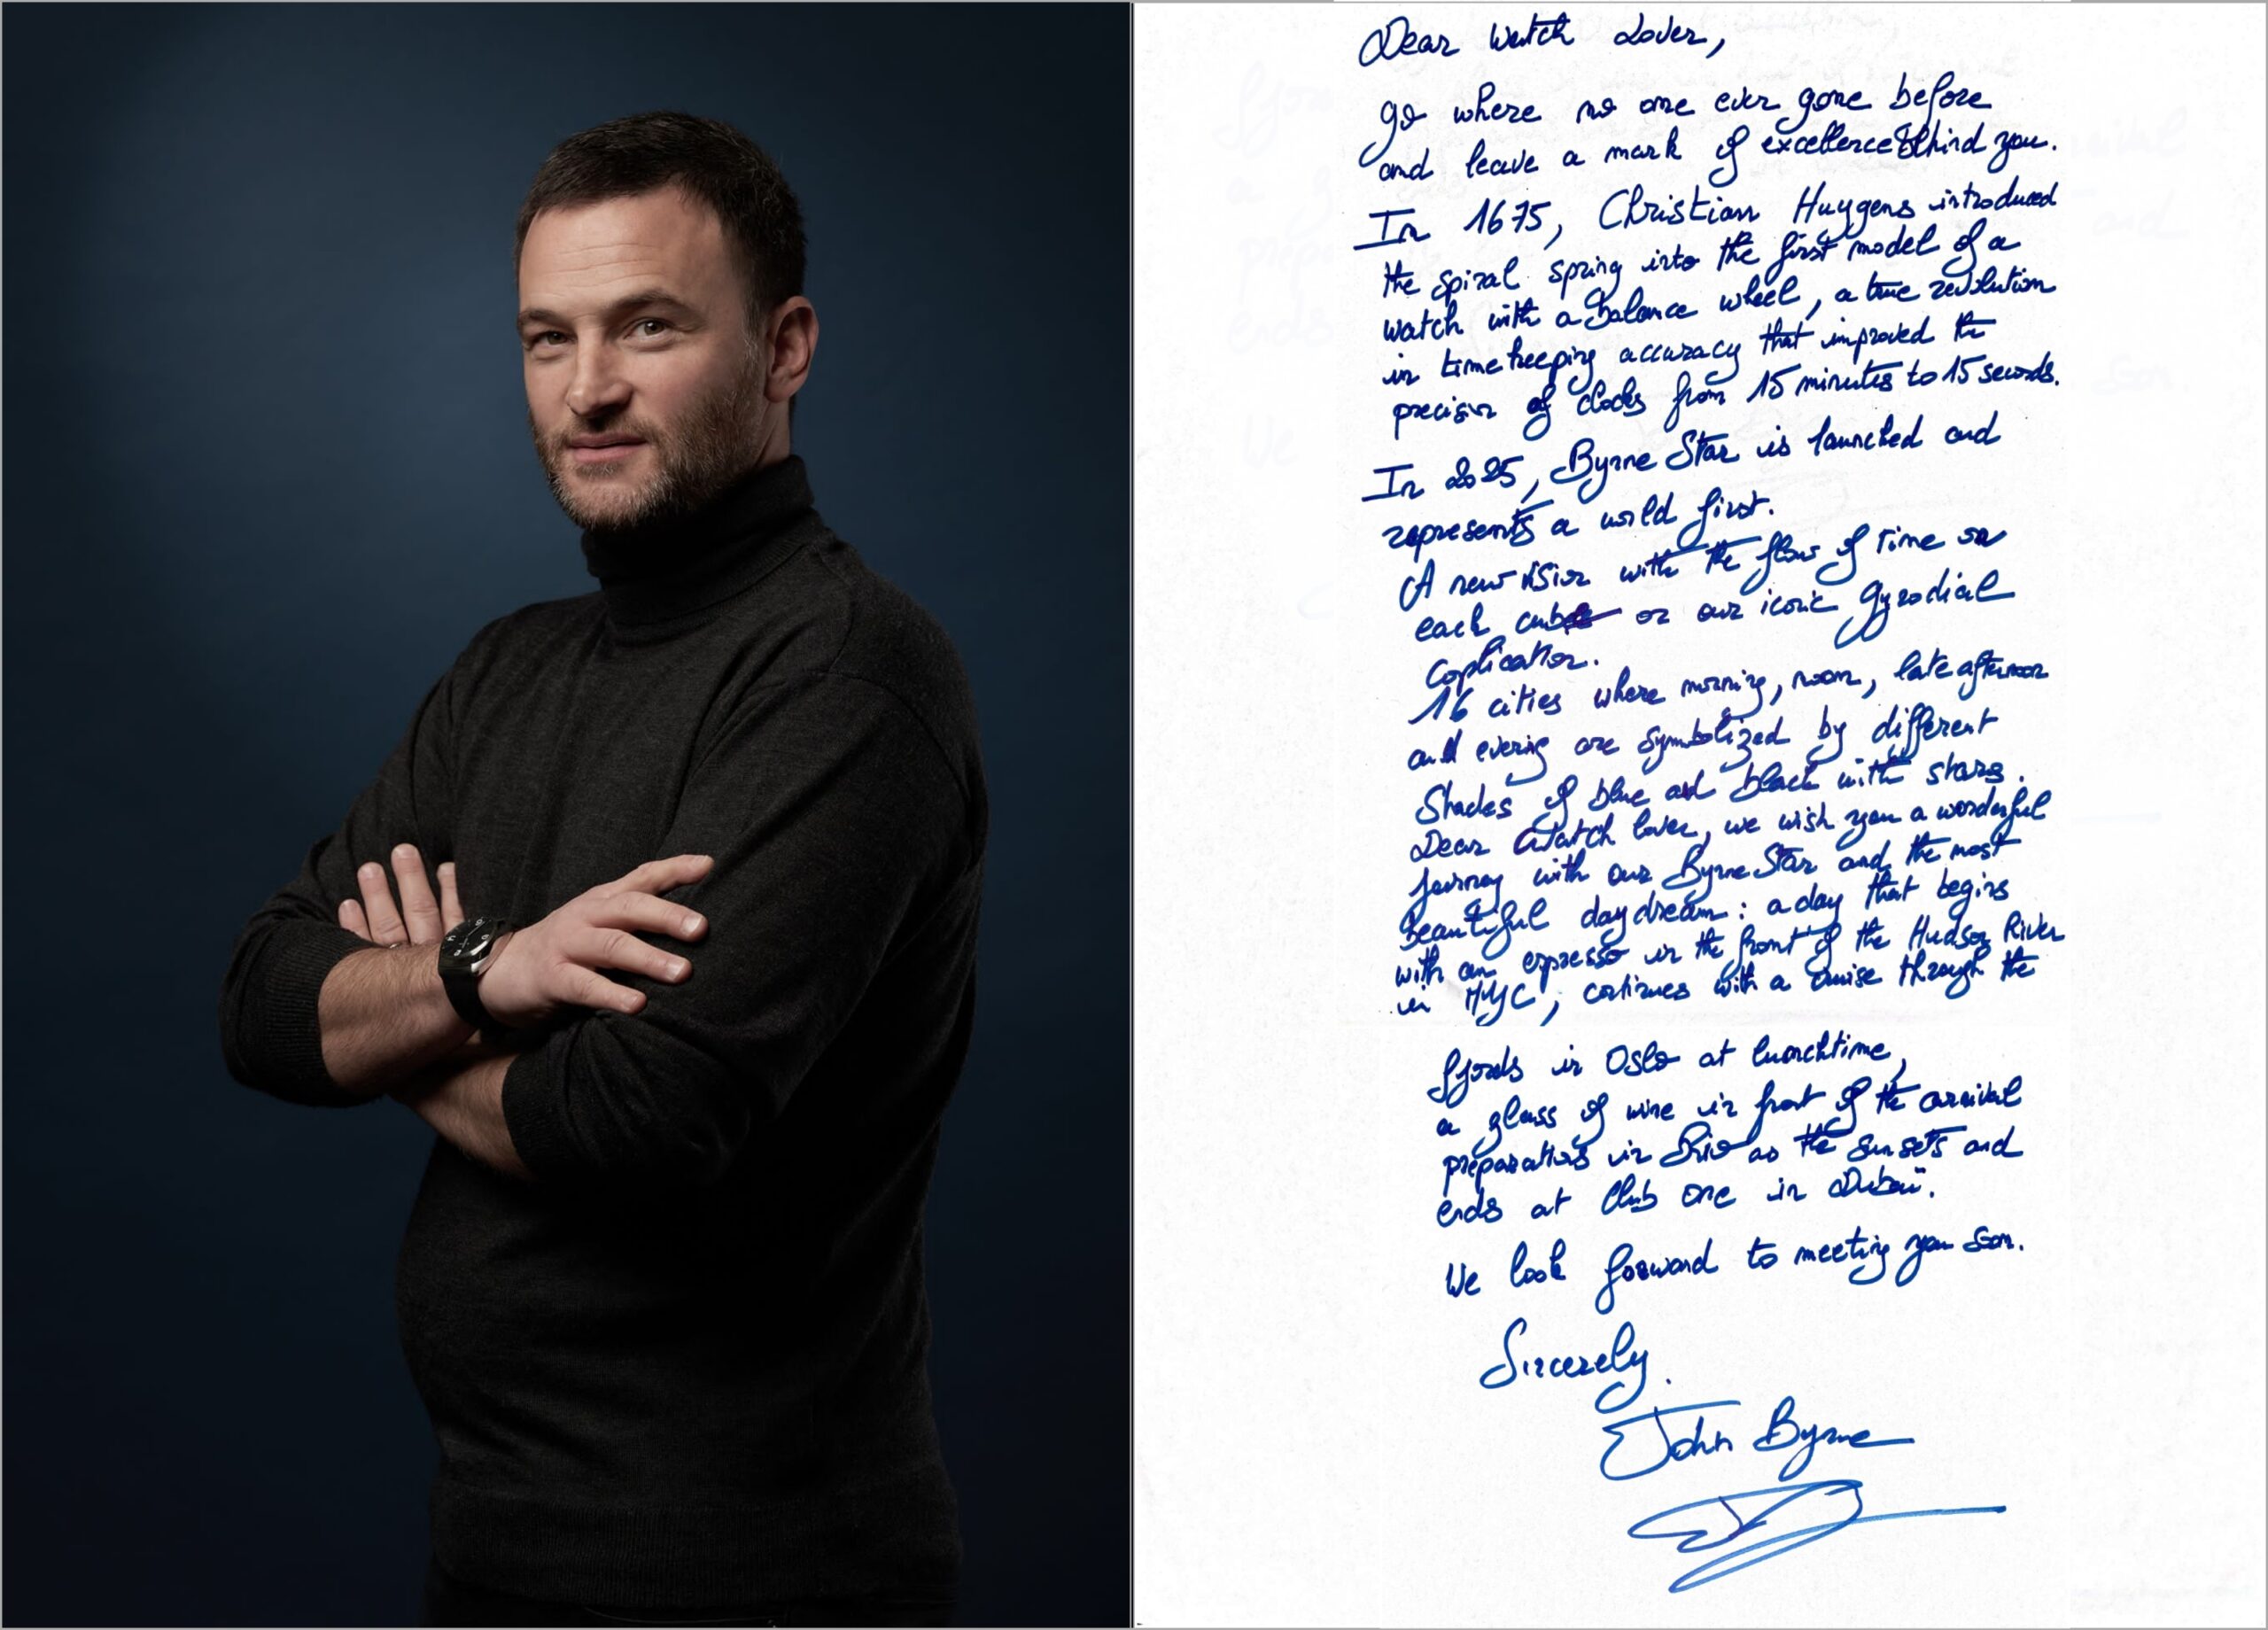 Dear Watch Lover,
go where no one ever gone before
and leave a mark of excellence Behind you.
In 1675, Christian Huygens introduced
the spiral spring into the first model of a
watch with a Balance wheel, a true revolution
in timekeeping accuracy that improved the
precision of clocks from 15 minutes to 15 seconds.
In 2025, Byrne Star is launched and
represents a world first.
A new vision with the flow of time on
each cube or our iconic gyrodial
coplication.
16 cities where morning, noon, late afternoon
and evening are symbolized by different
Shades of blue and black with stars.
Dear Watch lover, we wish you a wonderful
journey with our Byrne Star and the most
beautiful daydream: a day that begins
with an expresso in the front of the Hudson River
in NYC, continues with a cruise through the
fjords in Oslo at lunchtime,
a glass of wine in front of the carnival
preparations in Rio as the sun sets and
ends at Club One in Dubaï.
We look forward to meeting you soon.
Sincerely.
John Byrne